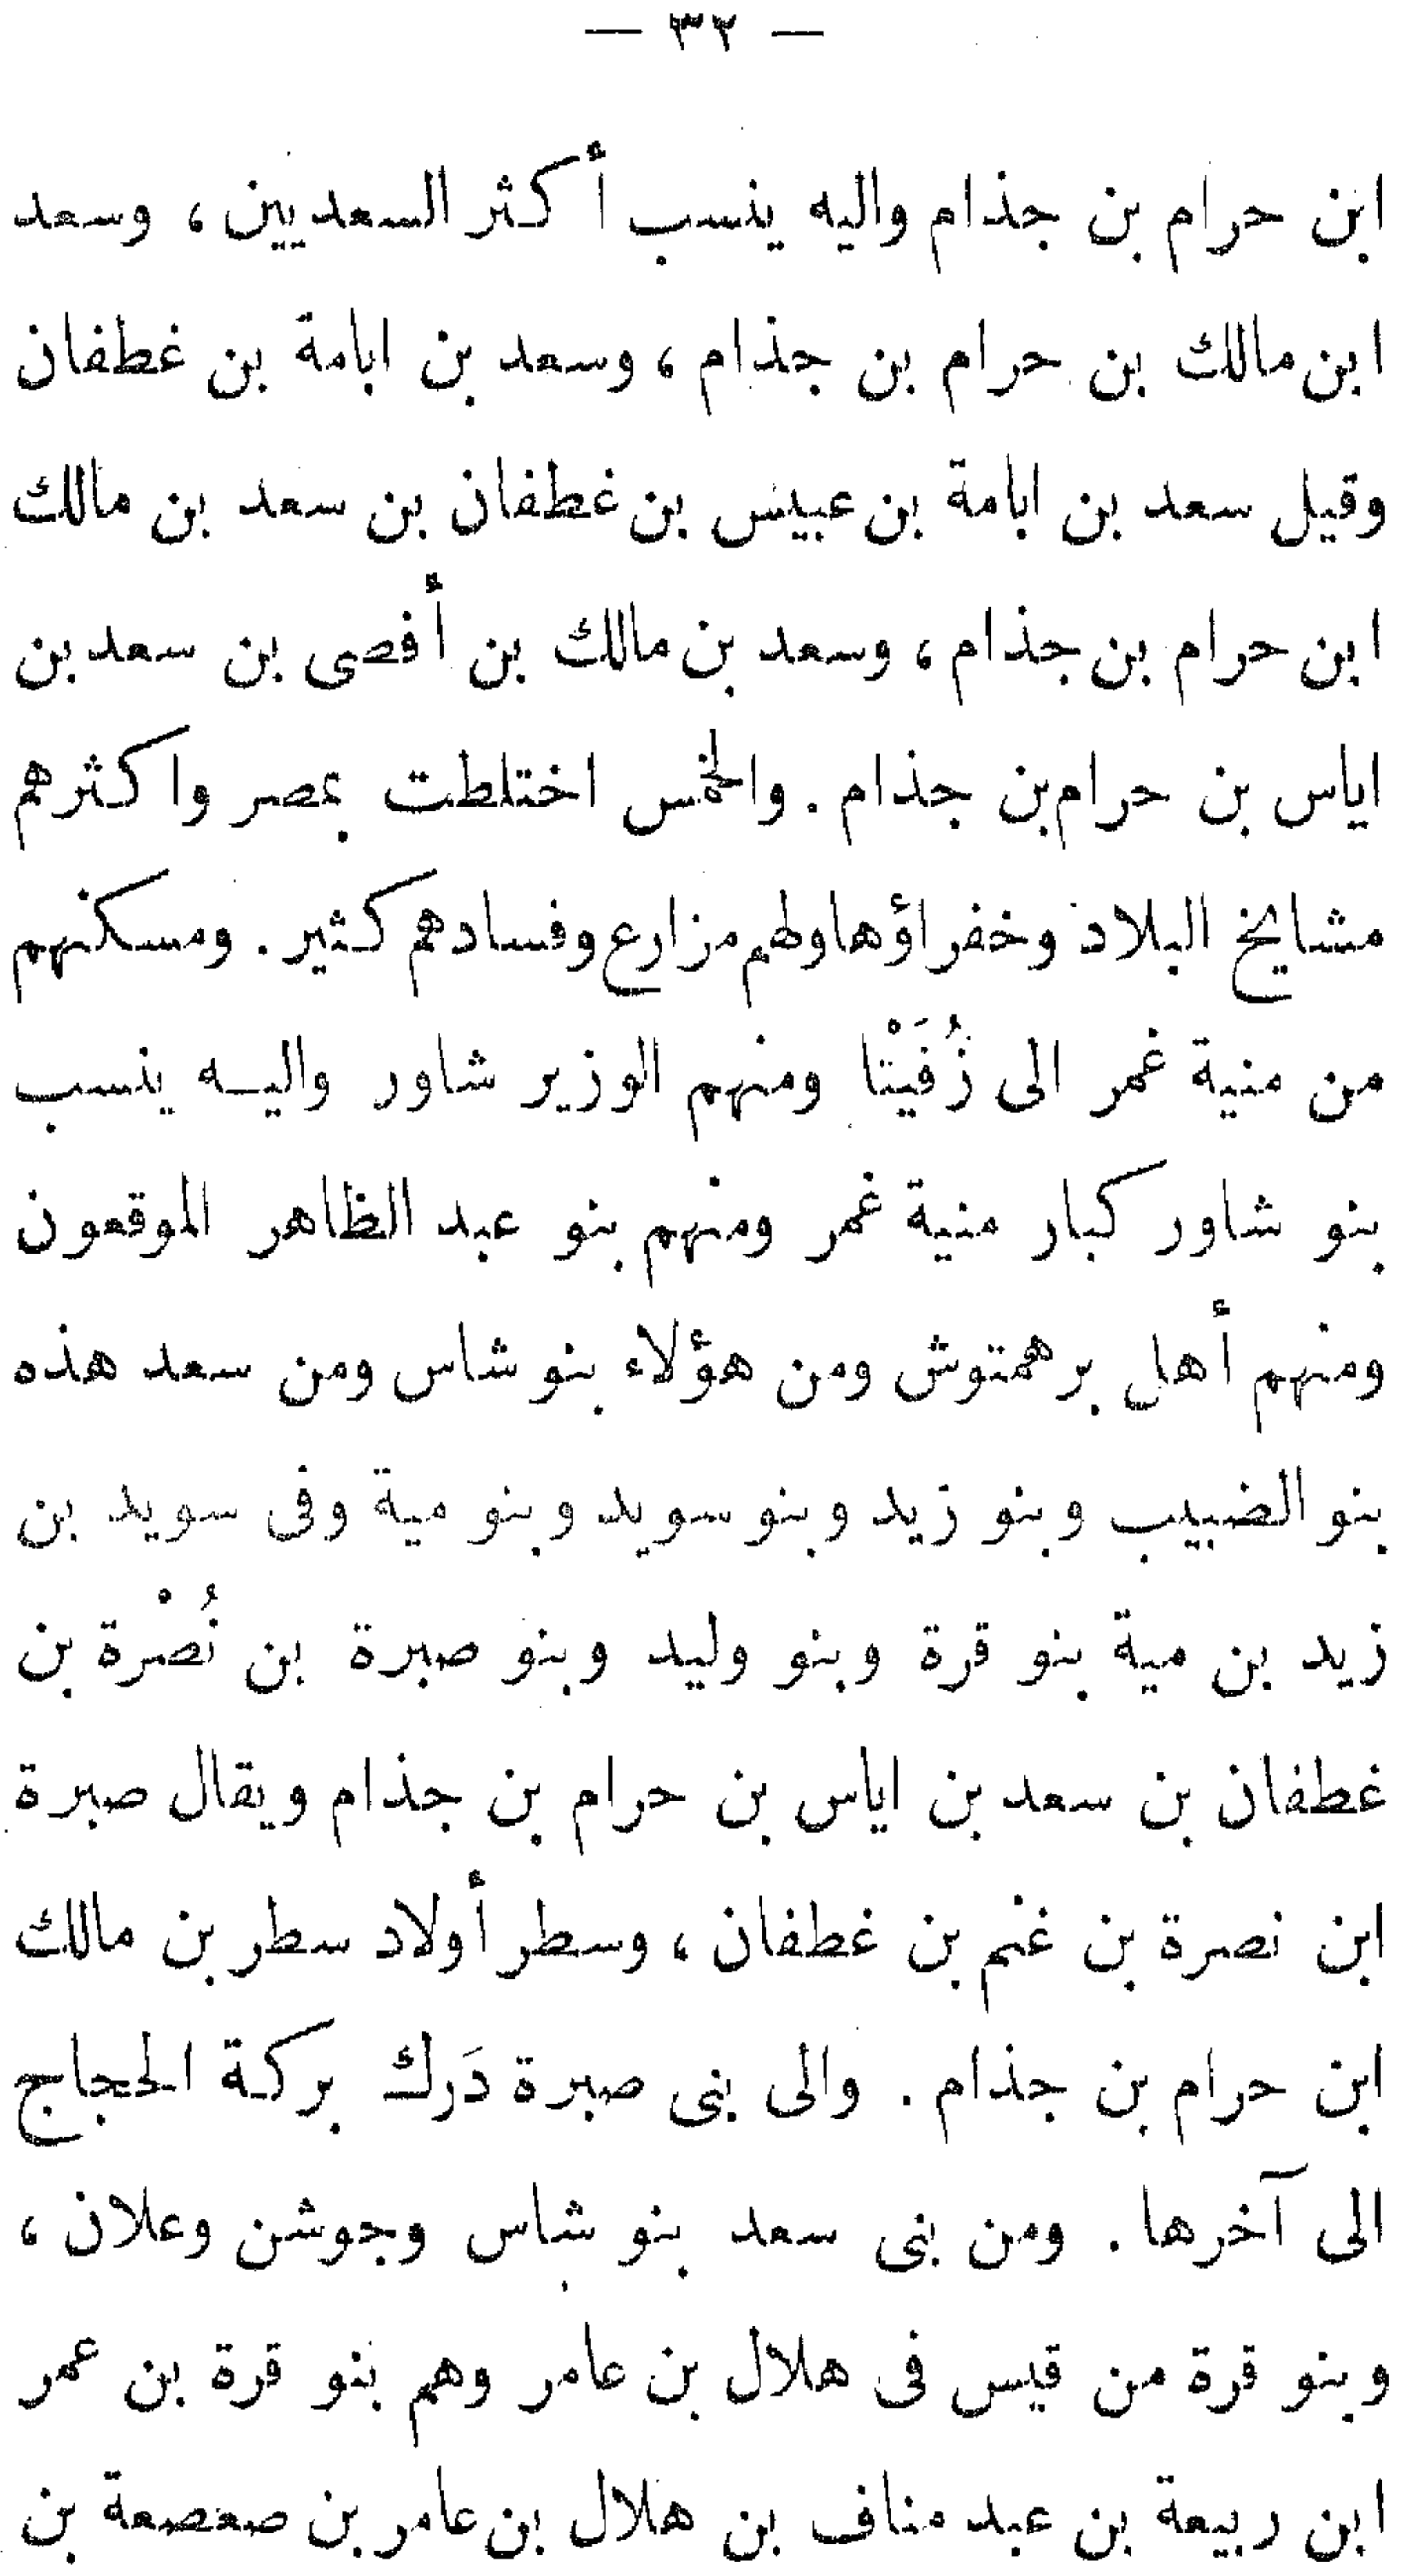 — ٣٢ —
ابن حرام بن جذام واليه ينسب أكثر السعديين ، وسعد
ابن مالك بن حرام بن جذام ، وسعد بن ابامة بن غطفان
وقيل سعد بن ابامة بن عبيس بن غطفان بن سعد بن مالك
ابن حرام بن جذام ، وسعد بن مالك بن أفصى بن سعد بن
اياس بن حرام بن جذام . والخمس اختلطت بمصر واكثرهم
مشايخ البلاد وخفراؤها ولهم مزارع وفسادهم كثير . ومسكنهم
من منية غمر الى زُفَيْتا ومنهم الوزير شاور واليه ينسب
بنو شاور كبار منية غمر ومنهم بنو عبد الظاهر الموقعون
ومنهم أهل برهمتوش ومن هؤلاء بنو شاس ومن سعد هذه
بنو الضبيب وبنو زيد وبنو سويد وبنو مية وفى سويد بن
زيد بن مية بنو قرة وبنو وليد وبنو صبرة بن نُصْرة بن
غطفان بن سعد بن اياس بن حرام بن جذام ويقال صبرة
ابن نصرة بن غنم بن غطفان ، وسطر أولاد سطر بن مالك
ابن حرام بن جذام . والى بنى صبرة دَرك بركة الحجاج
الى آخرها . ومن بنى سعد بنو شاس وجوشن وعلان ،
وبنو قرة من قيس فى هلال بن عامر وهم بنو قرة بن عمر
ابن ربيعة بن عبد مناف بن هلال بن عامر بن صعصعة بن